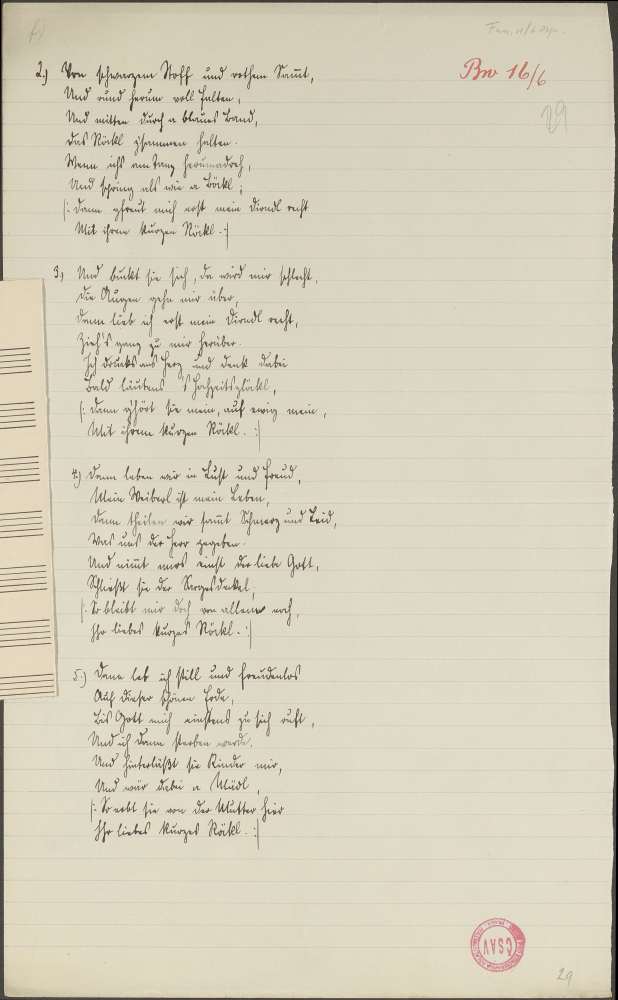 Bw 16/6
29
2.) Von schwarzem Stoff und rothem Samt,
Und rund herum voll Falten,
Und mitten durch a blaues Band,
Das Röckl zsammen halten.
Wenn ichs am Tanz herumadreh,
Und spring als wie a Böckl;
|: Dann gfreut mich erst mein Dirndl recht
Mit ihrem kurzen Röckl. :|
3.) Und buckt sie sich, da wird mir schlecht,
Die Augen gehn mir über,
Dann lieb ich erst mein Dirndl recht,
Zieh's ganz zu mir herüber.
Ich drucks ans Herz und denk dabei
Bald läutens 's Hochzeitsglöckl,
|: Dann ghört sie mein, auf ewig mein,
Mit ihrem kurzen Röckl. :|
4.) Dann leben wir in Lust und Freud,
Mein Weiberl ist mein Leben,
Dann theilen wir samt Schmerz und Leid,
Was uns der Herr gegeben.
Und nimt mirs einst der liebe Gott,
Schließt sie der Sargesdeckel,
|: So bleibt mir doch von allem noch,
Ihr liebes kurzes Röckl. :|
5.) Dann leb ich still und freudenlos
Auf dieser schönen Erde,
Bis Gott mich einstens zu sich ruft,
Und ich dann sterben werde.
Und hinterläßt sie Kinder mir,
Und wär dabei a Mädl,
|: So erbt sie von der Mutter hier
Ihr liebes kurzes Röckl. :|
ČSAV
29